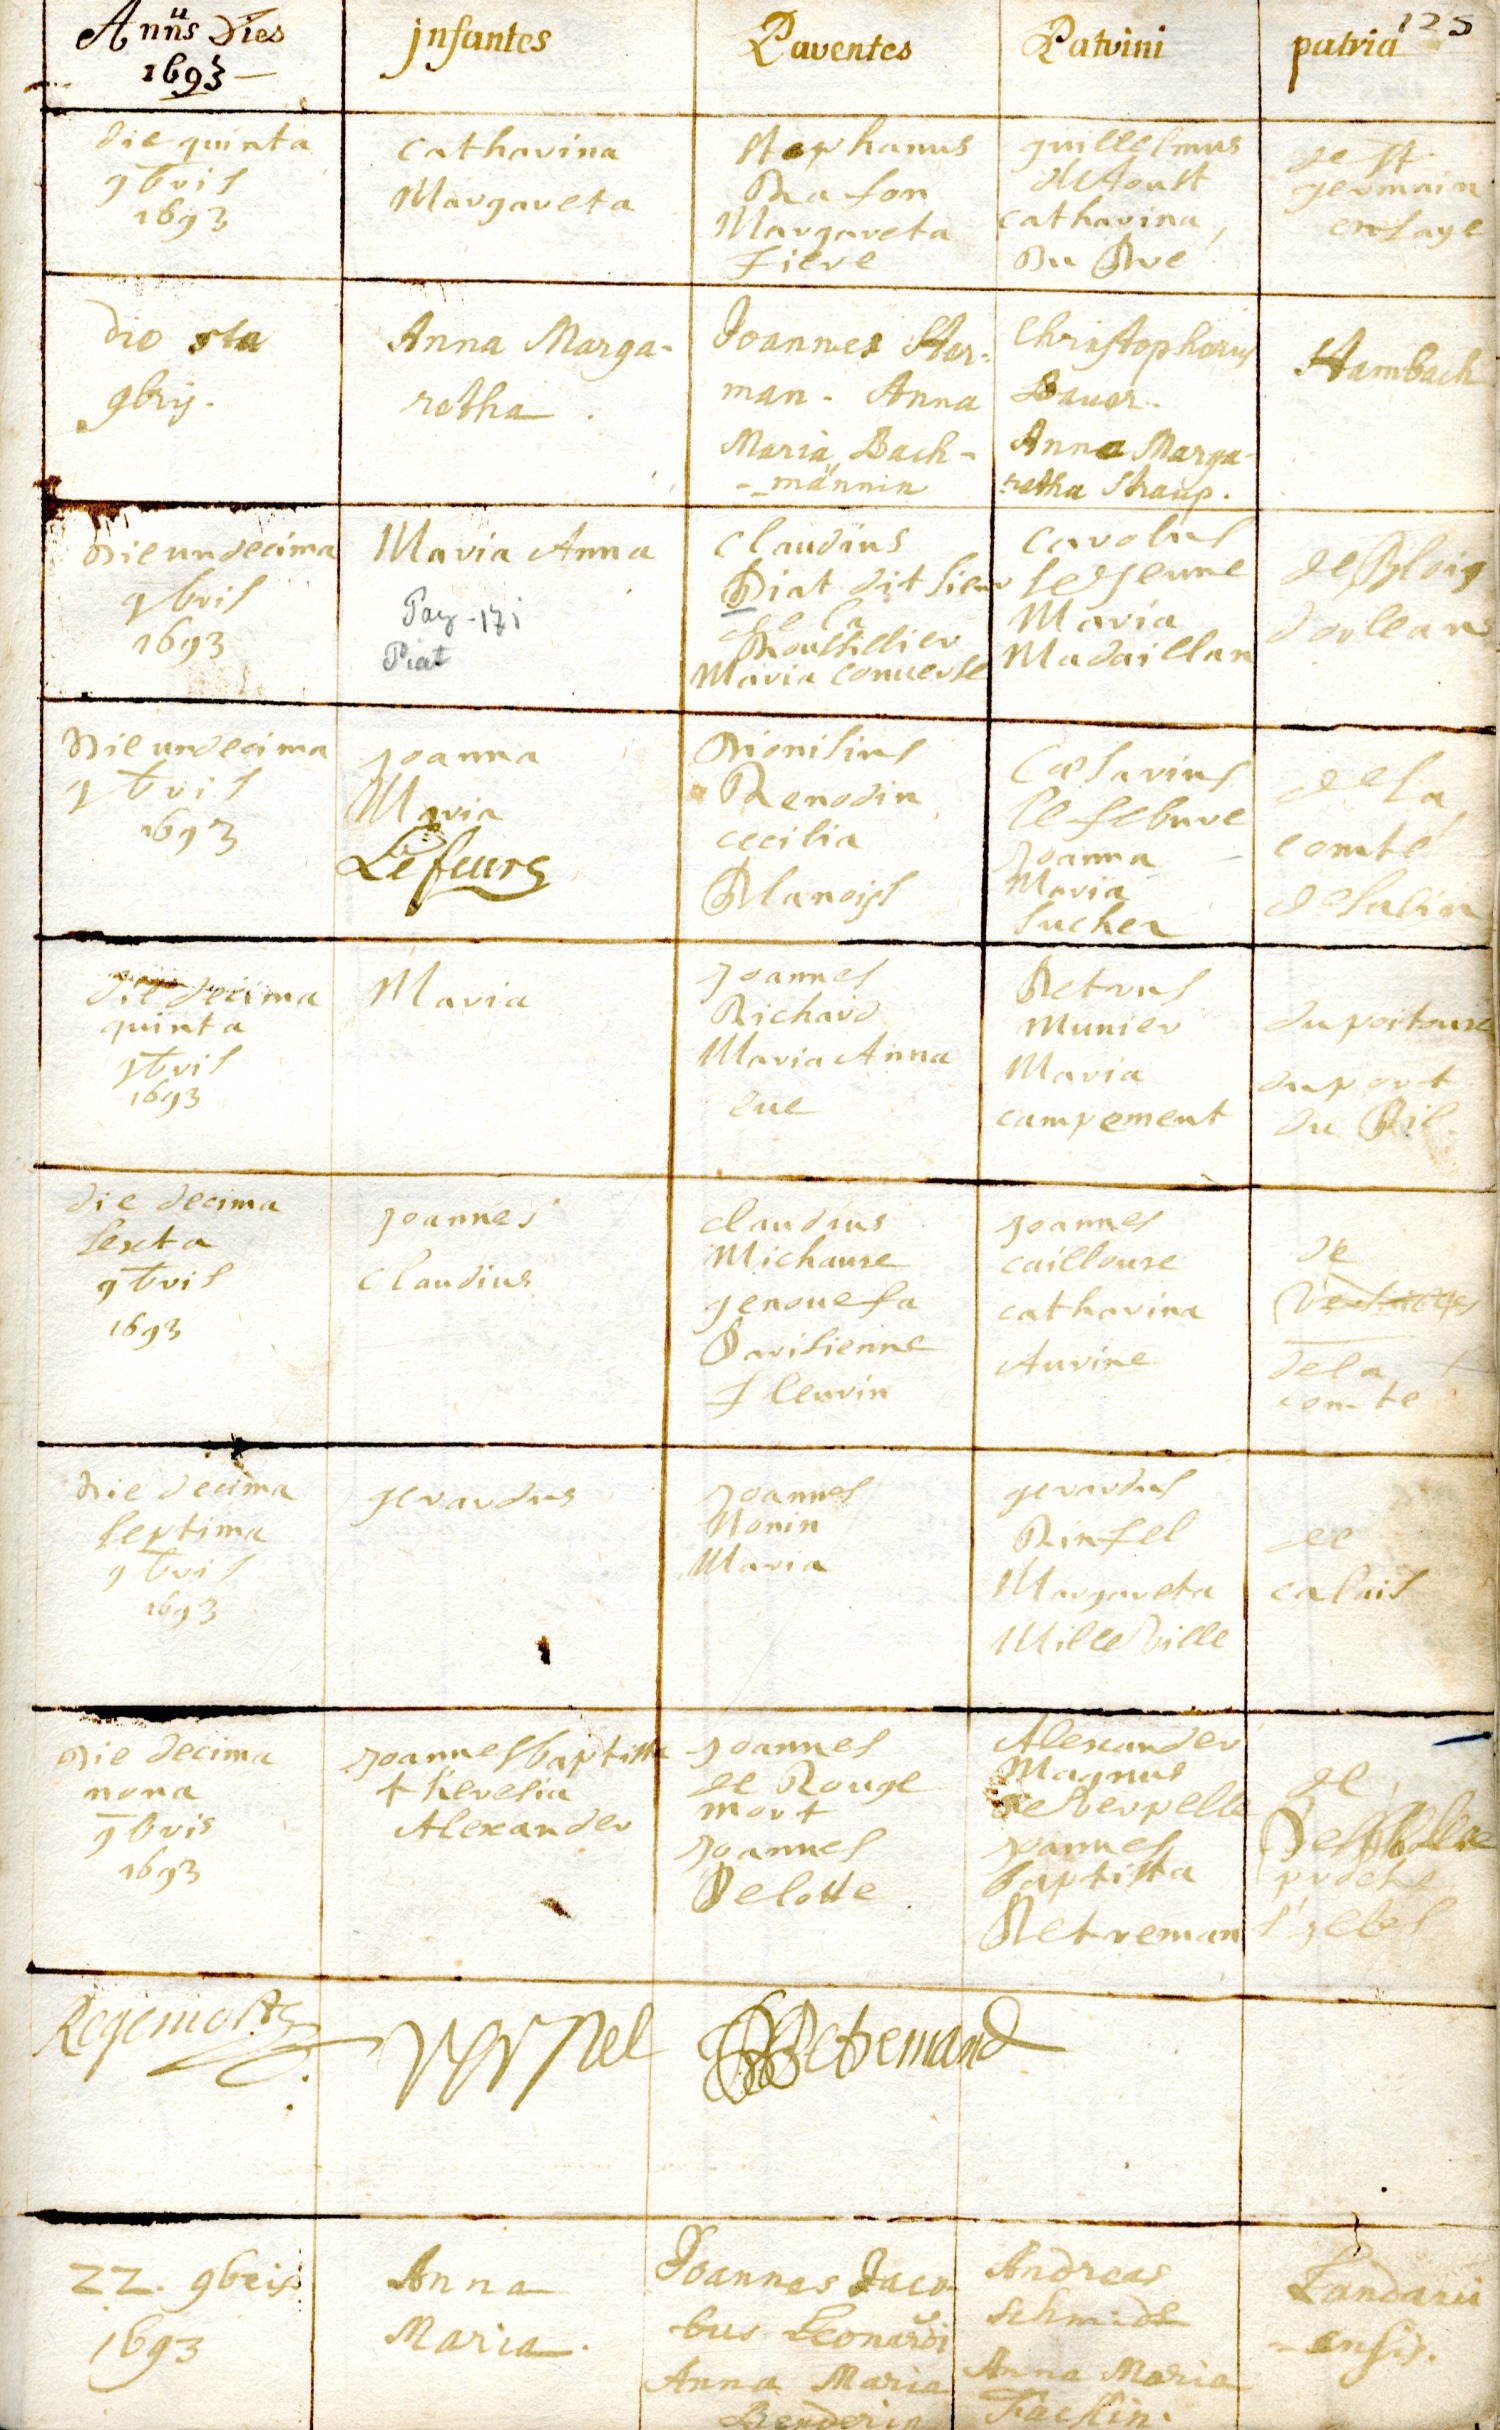 125
Anñs Dies
1693
jnfantes
Parentes
Patrini
patria
die quinta
9bris
1693
catharina
Margareta
stephanus
Rafon
Margareta
fieve
guillelmus
catharina
Du Pré
de st
germain
enlaye
die
9bris.
Anna Marga-
retha.
Joannes Her-
man. Anna
Maria Bach-
männin
Christophorus
Bauer.
Anna Marga-
retha Straup.
Hambach
Die undecima
9bris
1693
Maria Anna
Pag. 171
Piat
claudius
Piat dit sieur
de la
Roussillier
Maria conuerse
carolus
le Jeune
Maria
Madaillan
dorleans
Die undecima
9bris
1693
joanna
Maria
Lefeure
Dionisius
Renodin
cecilia
Cæsarius
le febure
joanna
Maria
sucher
de la
comté
desalin
die decima
quinta
9bris
1693
Maria
joannes
Richard
Maria Anna
eue
Petrus
munier
Maria
campement
du poitoure
duport
du Pil.
die decima
sexta
9bris
1693
joannes
claudius
claudius
Michaure
genouefa
Parisienne
fleurin
joannes
cailloure
catharina
Aurine
de
dela
comte
Die decima
septima
9bris
1693
gerardus
joannes
Monin
Maria
gerardus
Rinfel
Margareta
Milleville
de
calais
Die decima
nona
9bris
1693
joannes baptista
theresia
Alexander
joannes
de Rouge
mort
joannes
Pelotte
Alexander
Magnus
de verpelle
joannes
baptista
Petreman
de
proche
Regemorte
verpel
Petremand
22. 9bris
1693
Anna
Maria.
Joannes Jaco-
bus Leonardi
Anna Maria
Benderin
Andreas
Schmidt
Anna Maria
Landavi
-ensis.